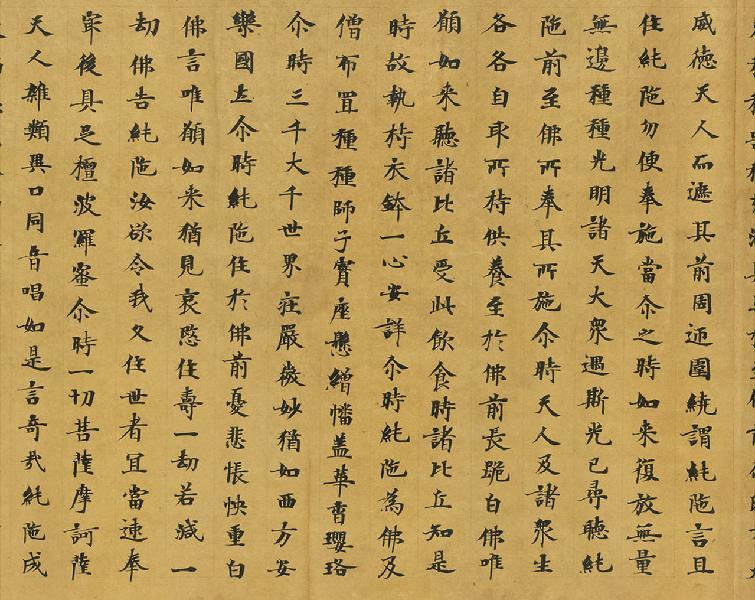 威德天人而遮其前周迊圍繞謂純陁言且
住純陁勿便奉施當尒之時如来復放無量
無邊種種光明諸天大衆遇斯光已尋聽純
陁前至佛所奉其所施尒時天人及諸衆生
各各自取所持供養至於佛前長跪白佛唯
願如来聽諸比丘受此飲食時諸比丘知是
時故執持衣鉢一心安詳尒時純陁為佛及
僧布置種種師子寶座懸繒幡盖華香瓔珞
尒時三千大千世界莊嚴微妙猶如西方安
樂國土尒時純陁住於佛前憂悲悵怏重白
佛言唯願如来猶見哀愍住壽一劫若減一
劫佛告純陁汝欲令我久住世者宜當速奉
冣後具足檀波羅蜜尒時一切菩薩摩訶薩
天人雜類異口同音唱如是言奇哉純陁成